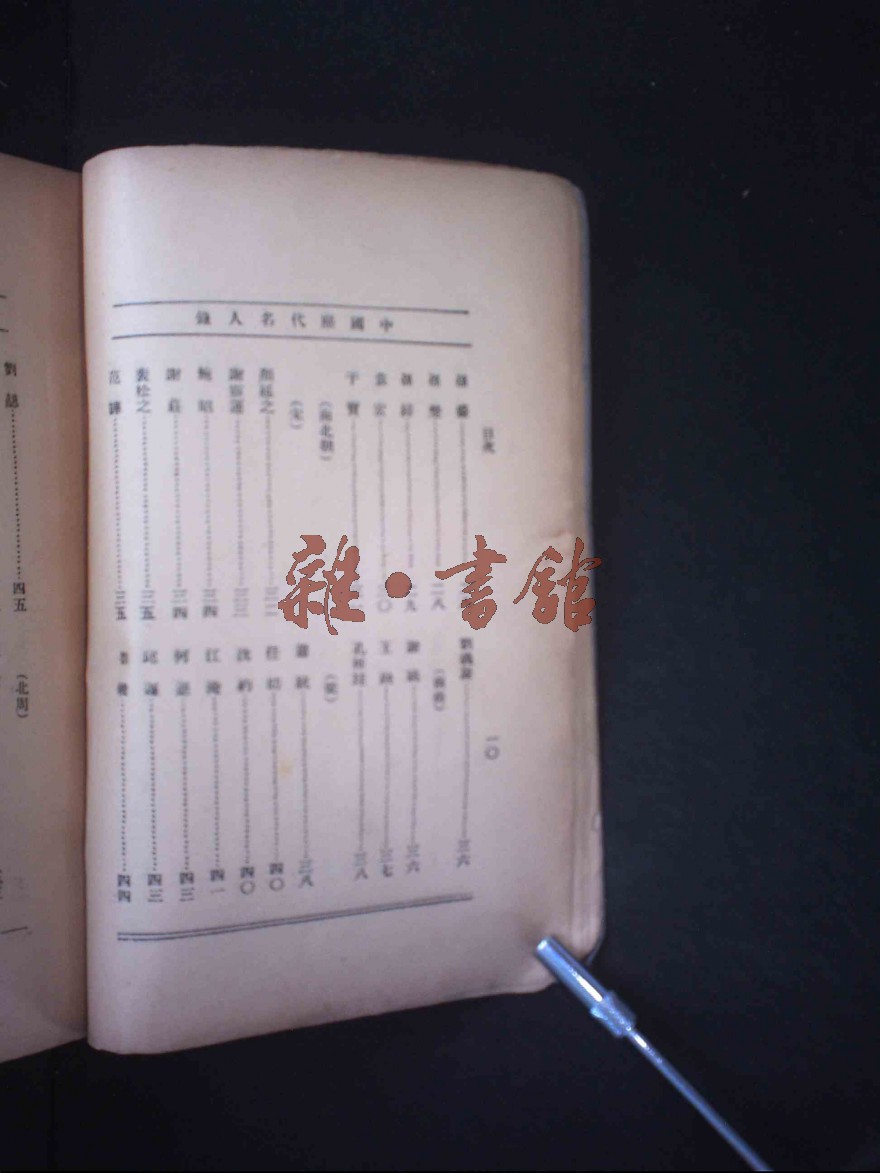 中國歷代名人錄
目次
一〇
孫楚……二八
孫綽……二九
袁宏……三〇
干寶
(南北朝)
(宋)
顏延之……三二
謝靈運……三三
鮑照……三四
謝莊……三四
裴松之……三五
范曄……三五
劉義慶……三六
(南齊)
謝朓……三六
王融……三七
孔稚珪……三八
(梁)
蕭統……三八
任昉……四〇
沈約……四〇
江淹……四一
何遜……四三
邱遲……四三
四四
劉勰……四五
(北周)
雜·書館